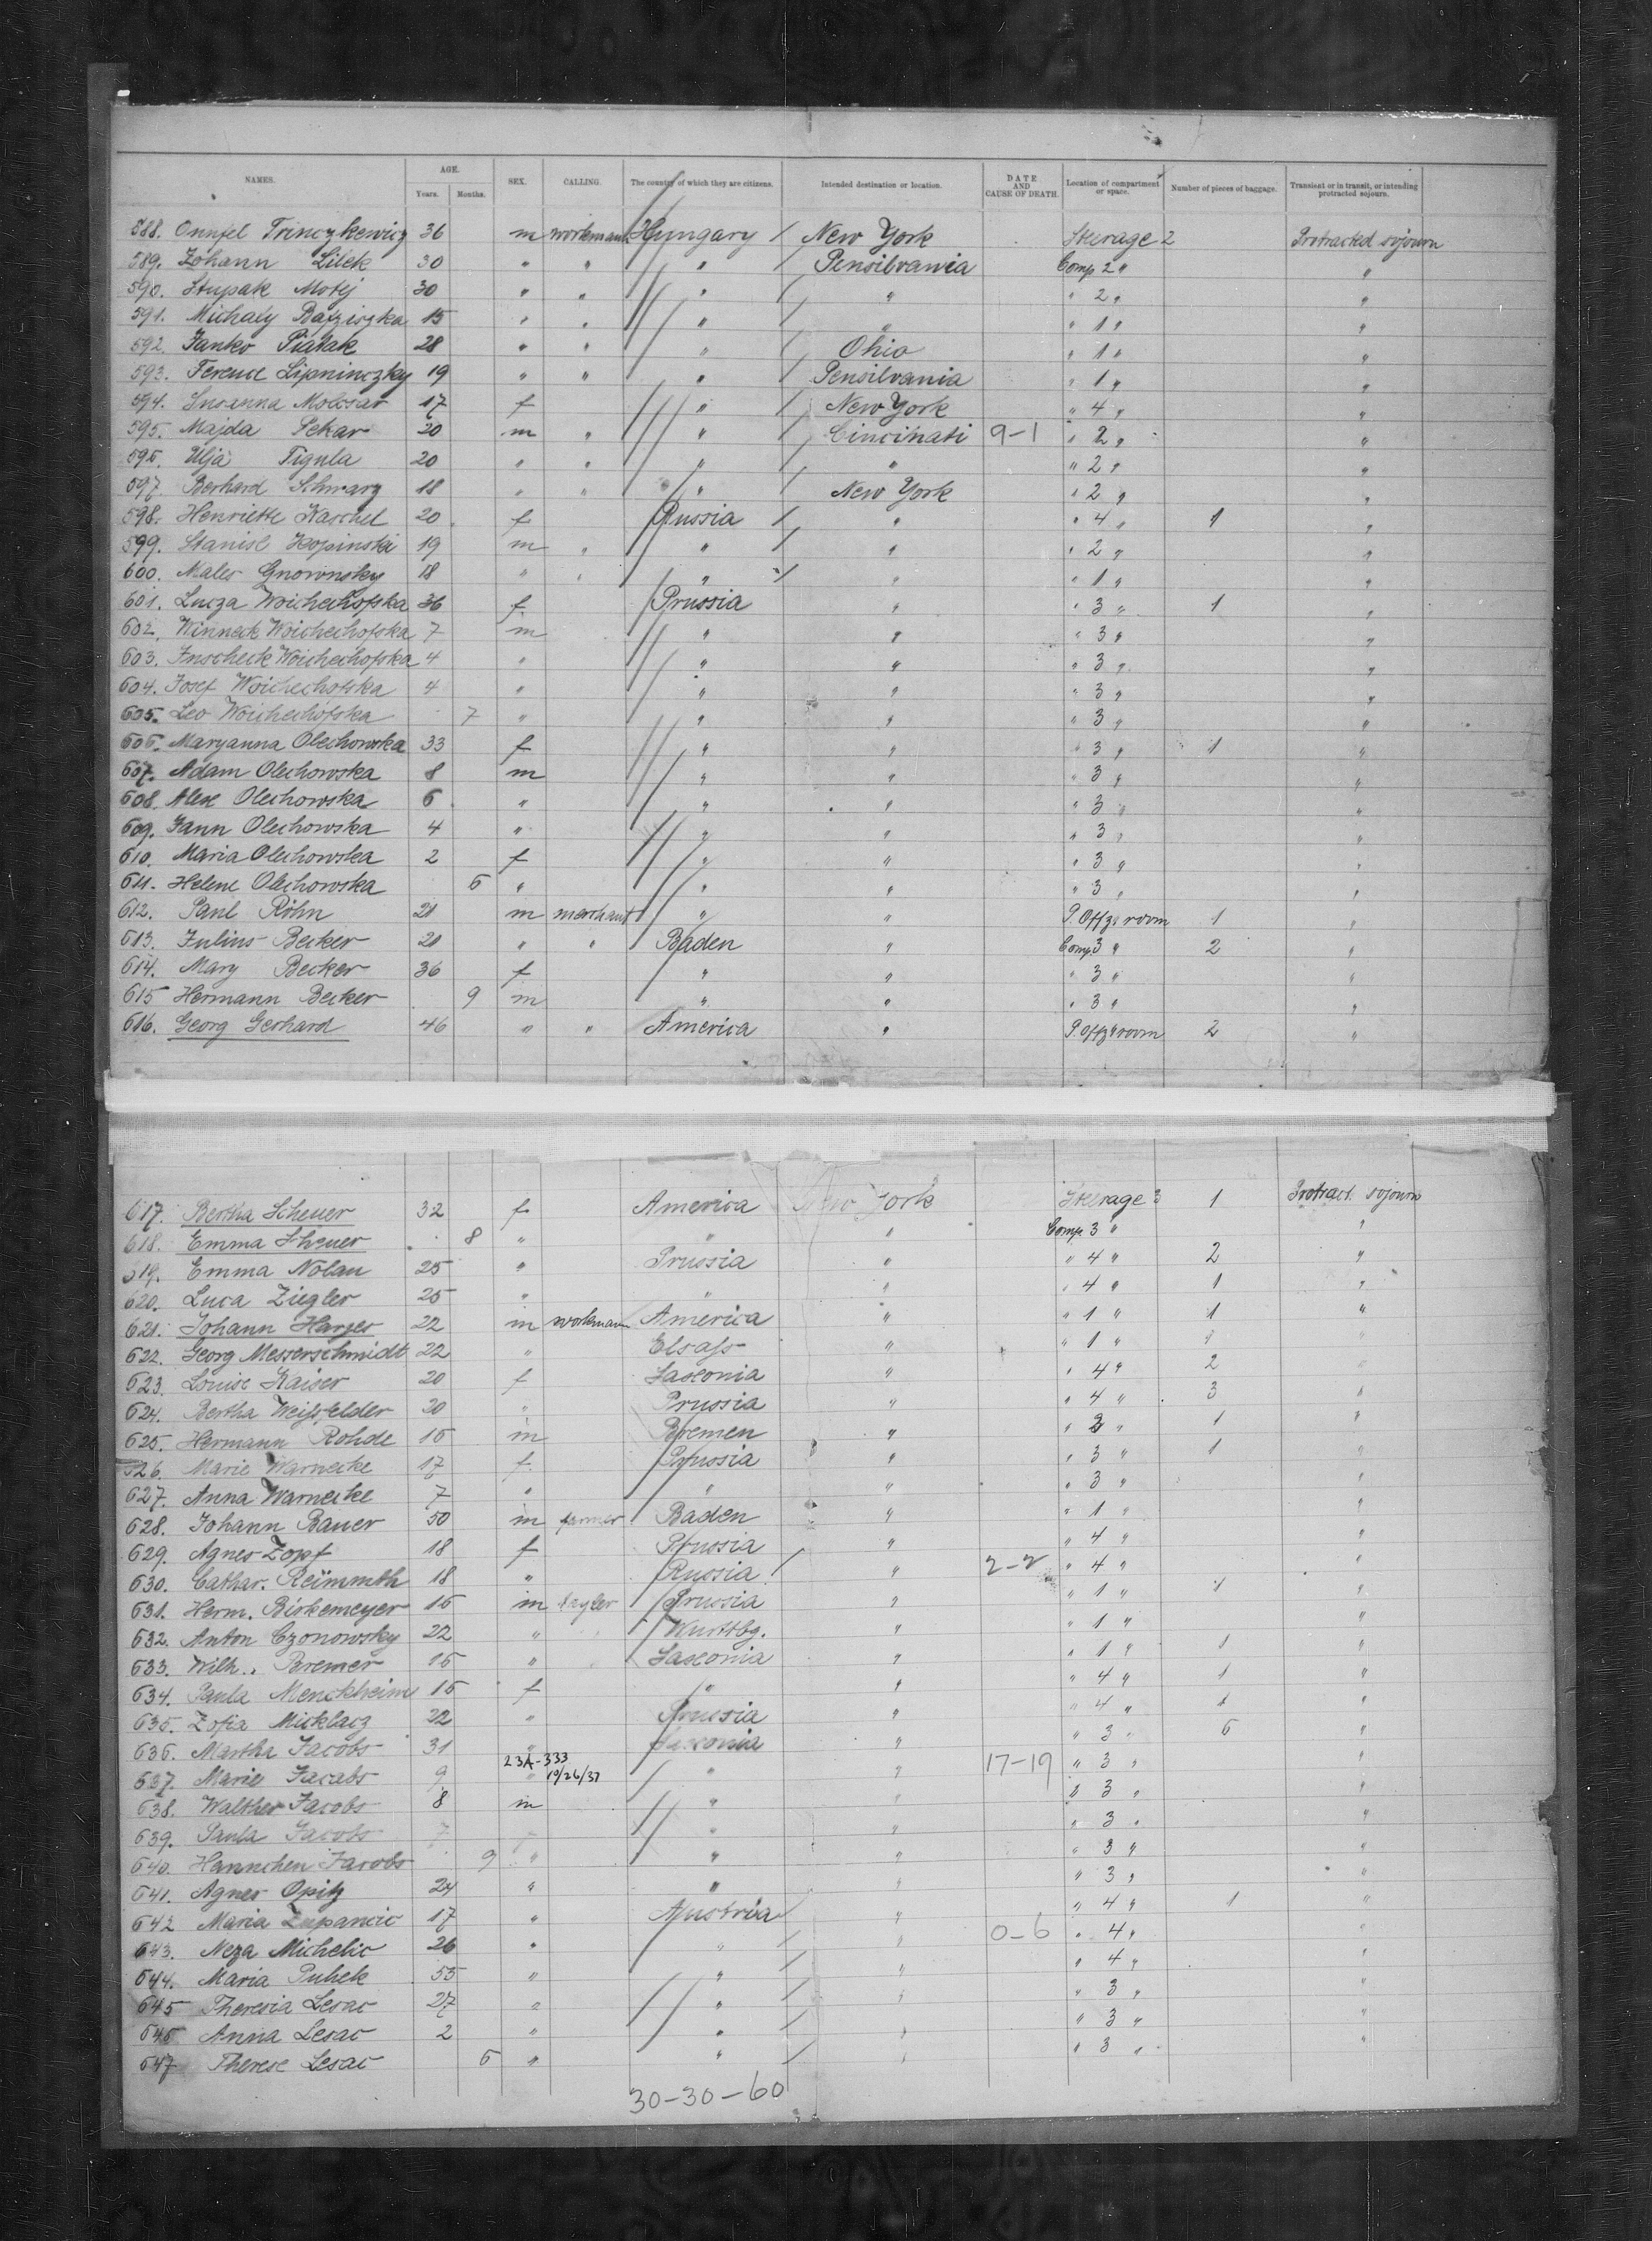 NAMES. AGE. Years. Months. SEX. CALLING. The country of which they are citizens. Intended destination or location. DATE AND CAUSE OF DEATH. Location of compartment or space. Number of pieces of baggage. Transient or in transit, or intending protracted sojourn.
588. Onufel Trinczkewicz 36 m workman Hungary / New York Steerage 2 Protracted sojourn
589. Johann Lilek 30 " " " / Pensilvania Comp. 2 " "
590. Stupak Motij 30 " " " / " " 2 " "
591. Michaly Bafziszka 15 " " " / " " 1 " "
592. Janko Piatak 28 " " " / Ohio " 1 " "
593. Ferencz Lipninczky 19 " " " / Pensilvania " 1 " "
594. Susanna Molcsar 17 f " / New York " 4 " "
595. Majda Pekar 20 m " " / Cincinati 9-1 " 2 " "
596. Ilja Tigula 20 " " " / " " 2 " "
597. Berhard Schwarz 18 " " " / New York " 2 " "
598. Henriette Kaschel 20 f Russia / " " 4 " 1 "
599. Stanisl Kopinski 19 m " " / " " 2 " "
600. Males Gnownsky 18 " " " / " " 1 " "
601. Lucza Woichechofska 36 f Prussia " " 3 " 1 "
602. Winneck Woichechofska 7 m " " " 3 " "
603. Inscheck Woichechofska 4 " " " " 3 " "
604. Josef Woichechofska 4 " " " " 3 " "
605. Leo Woichechofska 7 " " " " 3 " "
606. Maryanna Olechowska 33 f " " " 3 " 1 "
607. Adam Olechowska 8 m " " " 3 " "
608. Alex Olechowska 6 " " " " 3 " "
609. Jann Olechowska 4 " " " " 3 " "
610. Maria Olechowska 2 f " " " 3 " "
611. Helene Olechowska 6 " " " " 3 " "
612. Paul Röhn 21 m merchant " " P. Offz. room 1 "
613. Julius Becker 21 " " Baden " Comp. 3 " 2 "
614. Mary Becker 36 f " " " 3 " "
615 Hermann Becker 9 m " " " 3 " "
616. Georg Gerhard 46 " " America " P. Offz. room 2 "
617. Bertha Scheuer 32 f America New York Steerage 3 1 Protract. sojourn
618. Emma Sheuer 8 " " " Comp. 3 " "
619. Emma Nolau 25 " Prussia " " 4 " 2 "
620. Luca Ziegler 25 " " " " 4 " 1 "
621. Johann Harjes 22 m workmann America " " 1 " 1 "
622. Georg Messerschmidt 22 " Elsass " " 1 " "
623. Louise Kaiser 20 f Saxonia " " 4 " 2 "
624. Bertha Weissfelder 20 " Prussia " " 4 " 3 "
625. Hermann Rohde 16 m Bremen " " 2 " 1 "
626. Marie Warnecke 17 f Prussia " " 3 " 1 "
627. Anna Warnecke 7 " " " " 3 " "
628. Johann Bauer 50 m farmer Baden " " 1 " "
629. Agnes Zopf 18 f Prussia " " 4 " "
630. Cathar. Reimmth 18 " Russia / " 2-2 " 4 " "
631. Herm. Birkemeyer 16 m Prussia " " 1 " 1 "
632. Anton Czonowsky 22 " Wurttbg. " " 1 " "
633. Wilh. Bremer 16 " Saxonia " " 1 " 1 "
634. Paula Menckheim 16 f " " " 4 " 1 "
635. Zofia Micklacz 22 " Prussia " " 4 " 1 "
636. Martha Jacobs 31 " Saxonia " " 3 " 6 "
23A-333
637. Marie Jacabs 9 " 10/26/37 " " 17-19 " 3 " "
638. Walther Jacobs 8 m " " " 3 " "
639. Paula Jacobs 7 f " " " 3 " "
640. Hannchen Jacobs 9 " " " " 3 " "
641. Agnes Opitz 24 " " " " 3 " "
642 Maria Zupancic 17 " Austria / " " 4 " 1 "
643. Neza Michelic 26 " " / " 0-6 " 4 " "
644. Maria Puhek 55 " " / " " 4 " "
645 Theresia Lesac 27 " " / " " 3 " "
646 Anna Lesac 2 " " / " " 3 " "
647 Therese Lesac 6 " " / " " 3 " "
30-30-60